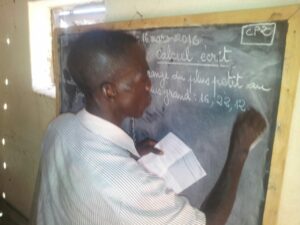 16 mars 2016
CP2
Calcul écrit
range du plus petit au
plus grand : 16, 22, 12